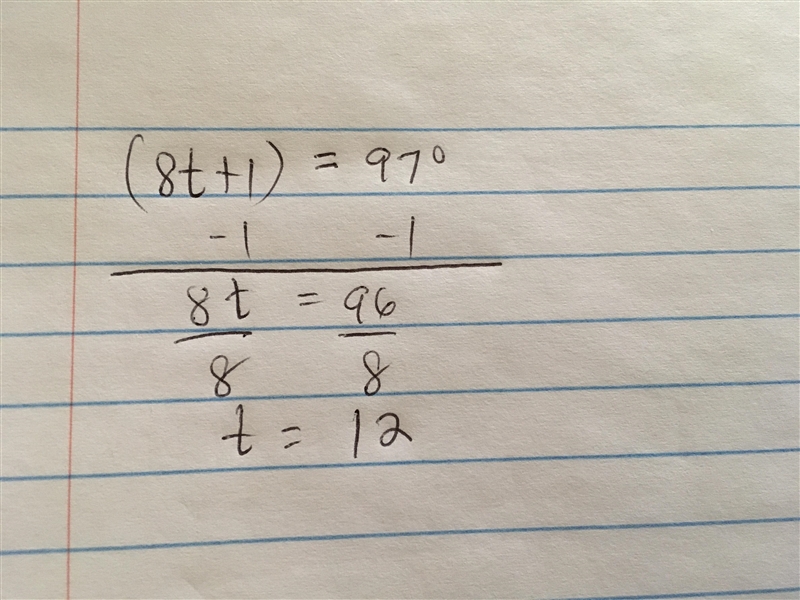 (8t+1) = 97°
-1 -1
8t = 96
8 8
t = 12